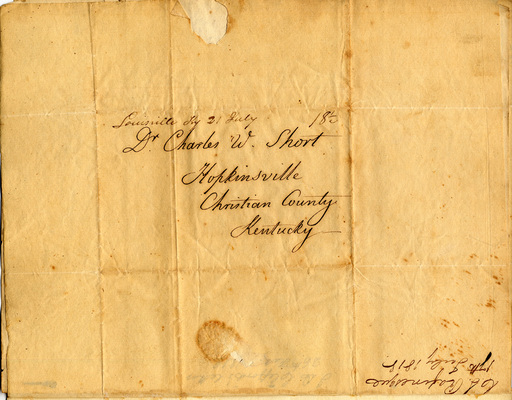 Louisville Ky 21 July 18½
Dr Charles W. Short
Hopkinsville
Christian County
Kentucky
C. S. Rafinesque
July 1818